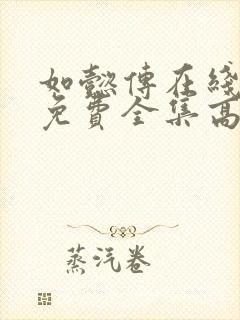 如懿傅在綫
免費全集高
蒸汽卷